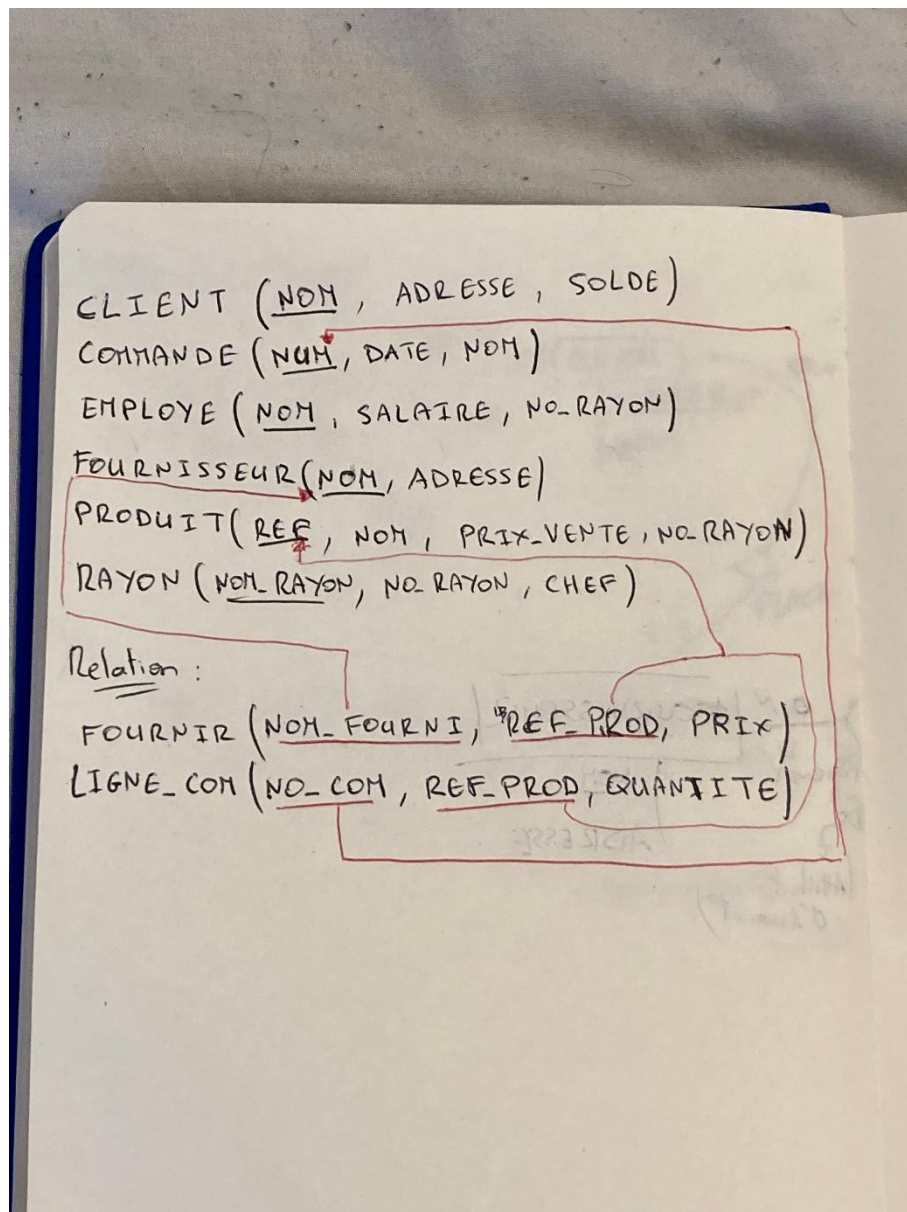 CLIENT (NOM, ADRESSE, SOLDE)
COMMANDE (NUM, DATE, NOM)
EMPLOYE (NOM, SALAIRE, NO_RAYON)
FOURNISSEUR (NOM, ADRESSE)
PRODUIT (REF, NOM, PRIX_VENTE, NO_RAYON)
RAYON (NOM_RAYON, NO_RAYON, CHEF)
Relation :
FOURNIR (NOM_FOURNI, REF_PROD, PRIX)
LIGNE_COM (NO_COM, REF_PROD, QUANTITE)